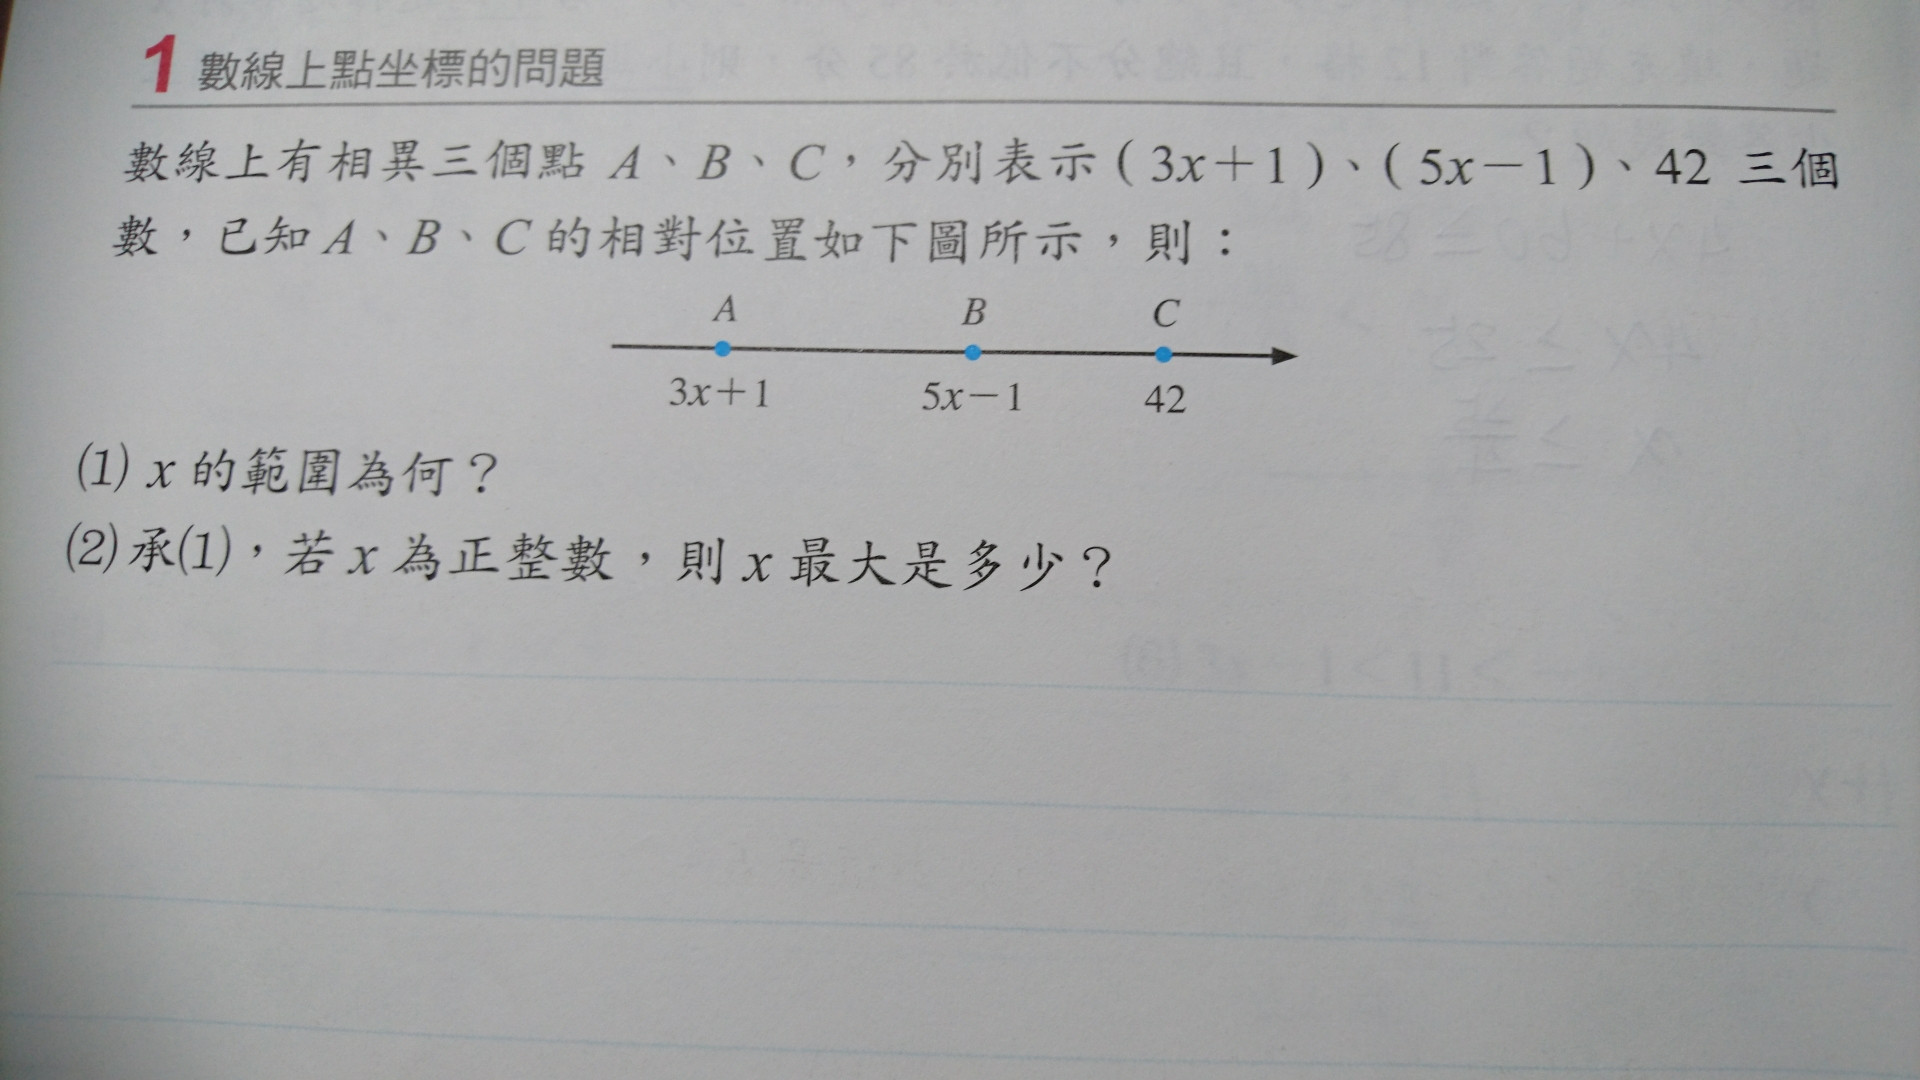 1 數線上點坐標的問題
數線上有相異三個點 A、B、C，分別表示(3x+1)、(5x-1)、42 三個
數，已知 A、B、C 的相對位置如下圖所示，則：
A B C
3x+1 5x-1 42
(1) x 的範圍為何？
(2) 承(1)，若 x 為正整數，則 x 最大是多少？